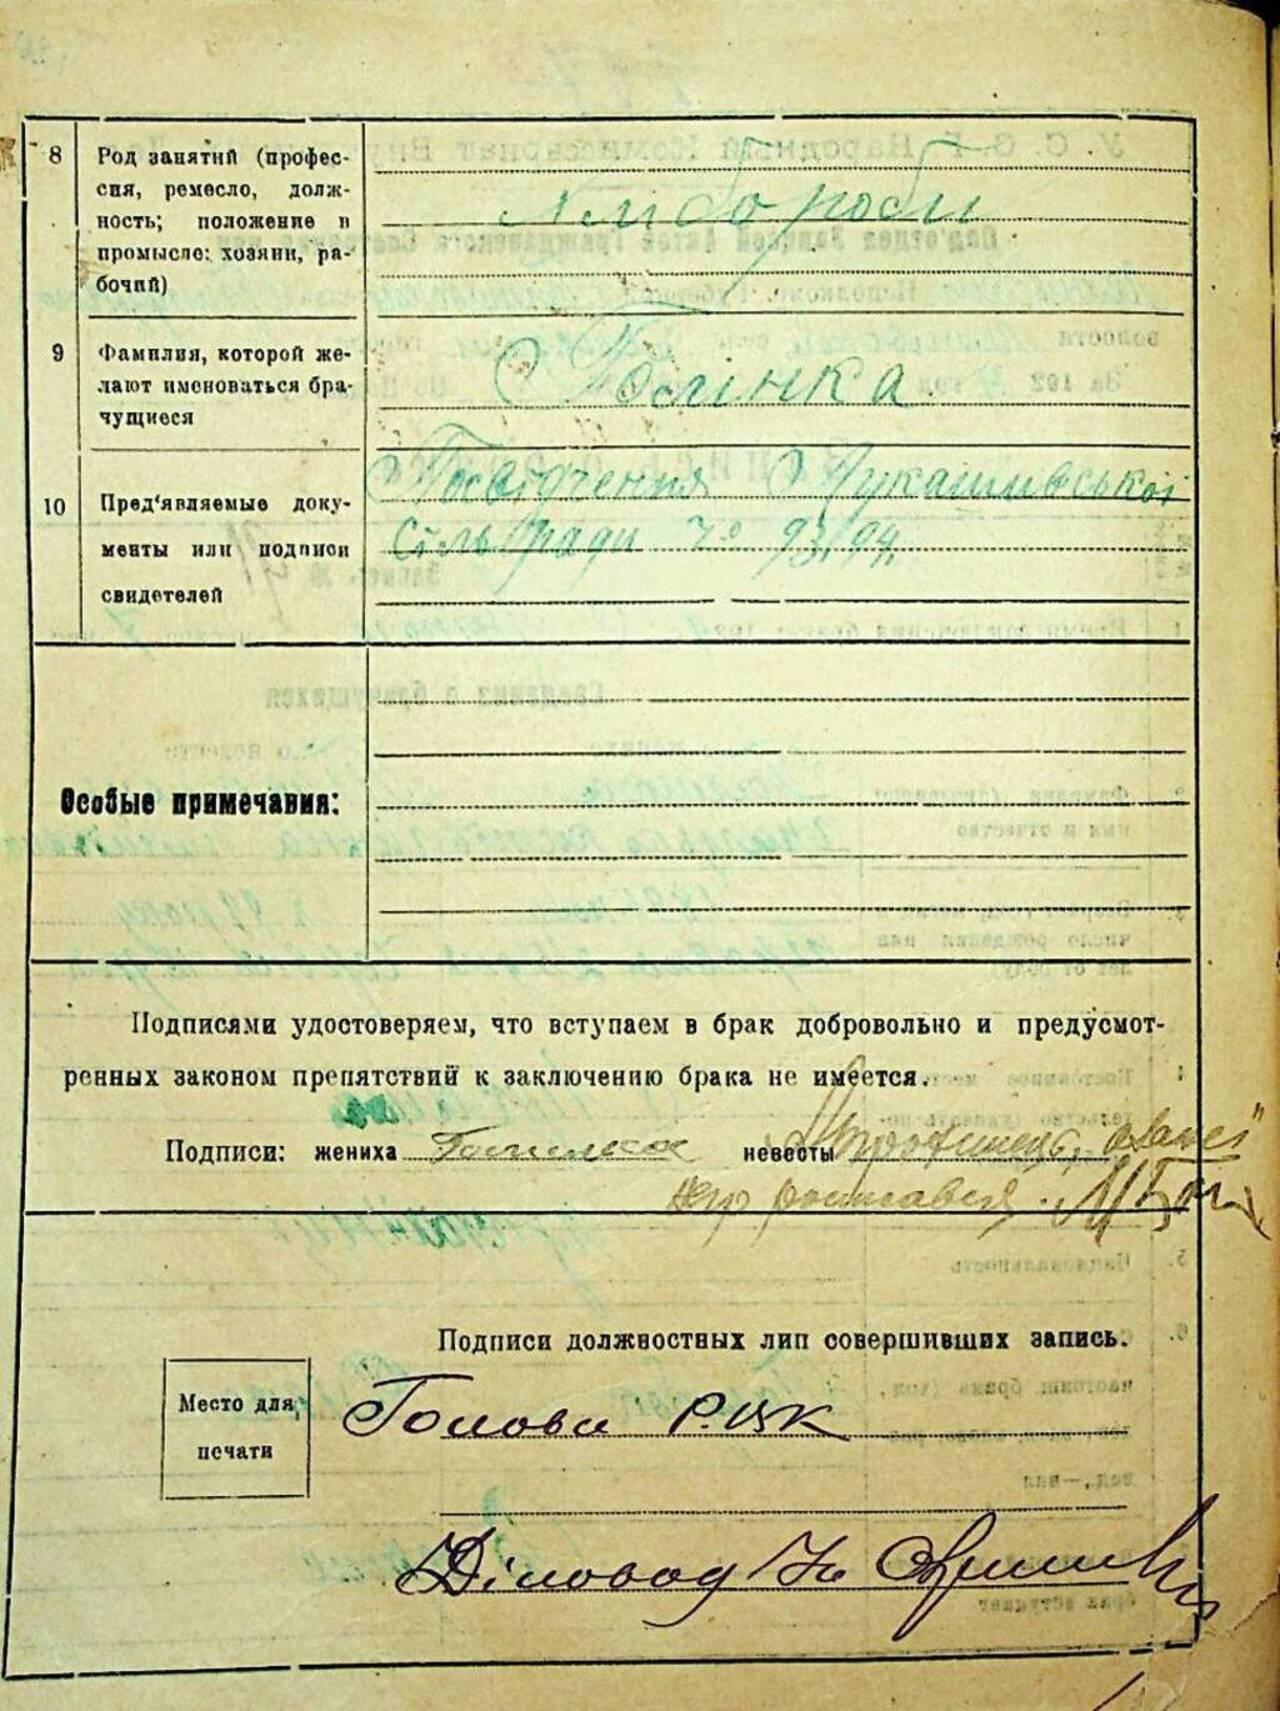 8
Род занятий (профес-
сия, ремесло, долж-
ность; положение в
промысле: хозяин, ра-
бочий)
Хлибороби
9
Фамилия, которой же-
лают именоваться бра-
чущиеся
10
Пред'являемые доку-
менты или подписи
свидетелей
Посвідчення Лукашивської
Сільради № 93/94.
Особые примечания:
Подписями удостоверяем, что вступаем в брак добровольно и предусмот-
ренных законом препятствий к заключению брака не имеется.
Подписи: жениха невесты
Подписи должностных лиц совершивших запись.
Место для
печати
Голова
Діловод